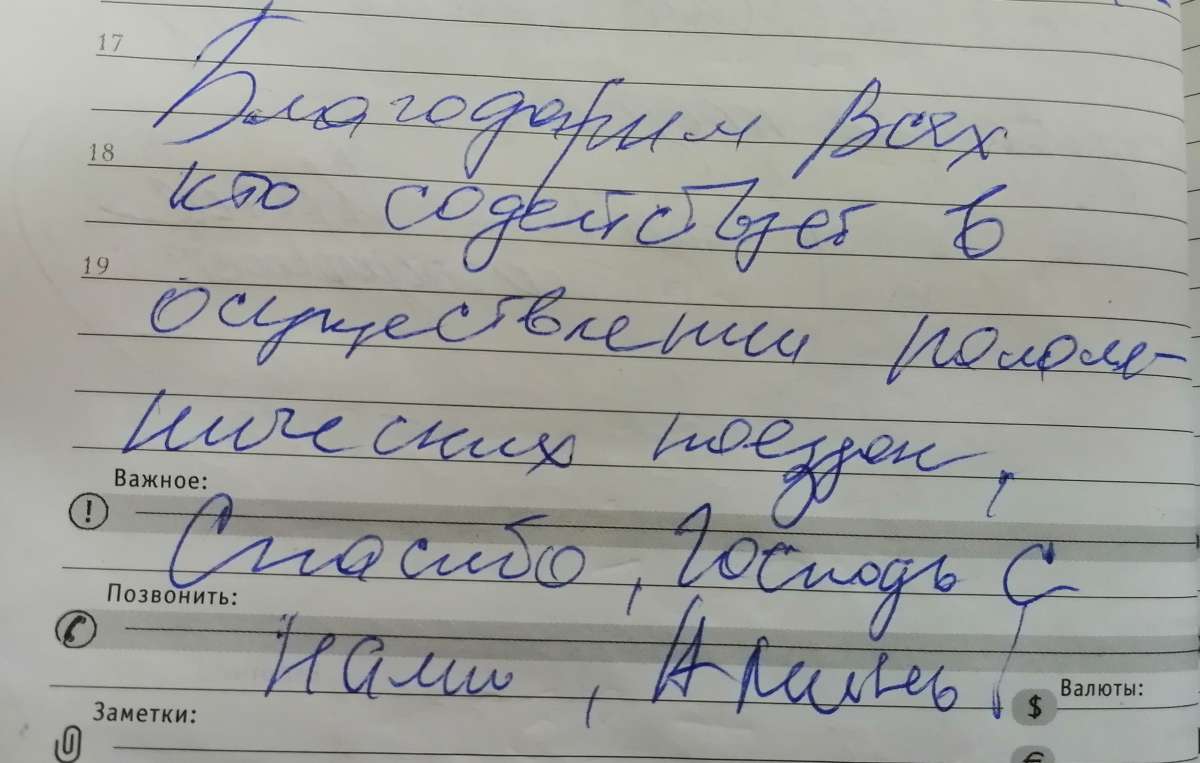 17
Благодарим всех
18
кто содействует в
19
осуществлении палом-
нических поездок,
Важное:
!
Спасибо, Господь с
Позвонить:
Нами, Аминь!
$ Валюты:
Заметки:
€